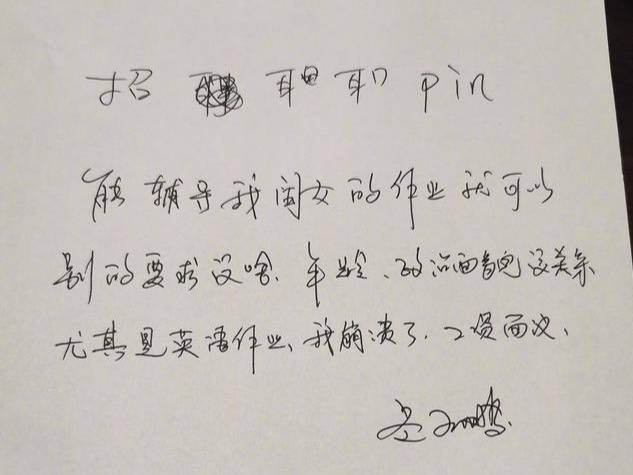 招 pin
能辅导我闺女的作业就可以
别的要求没啥、年龄、政治面貌没关系
尤其是英语作业、我崩溃了、工资面议、
孟